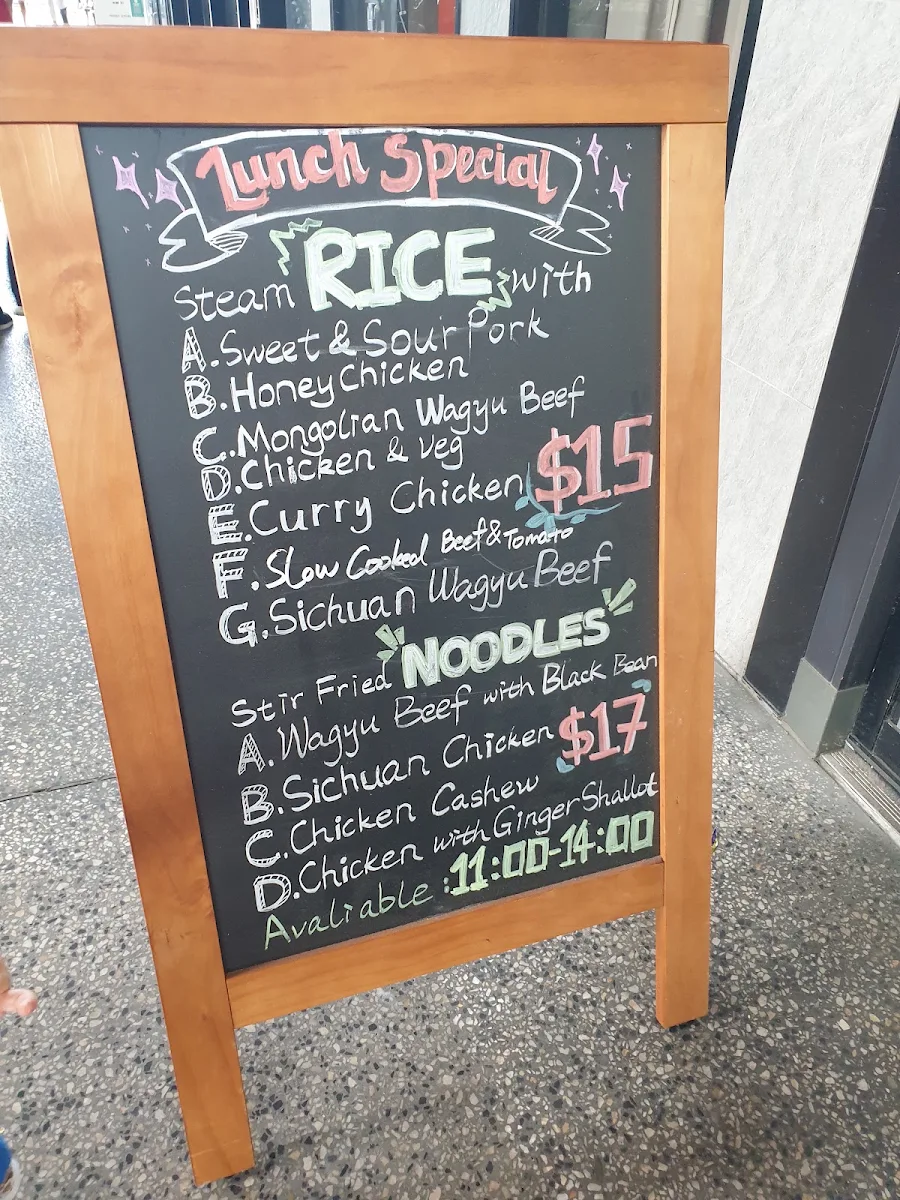 Lunch Special
Steam RICE with
A. Sweet & Sour Pork
B. Honey Chicken
C. Mongolian Wagyu Beef
D. Chicken & Veg
E. Curry Chicken
$15
F. Slow Cooked Beef & Tomato
G. Sichuan Wagyu Beef
Stir Fried NOODLES
A. Wagyu Beef with Black Bean
B. Sichuan Chicken
$17
C. Chicken Cashew
D. Chicken with Ginger Shallot
Avaliable : 11:00-14:00